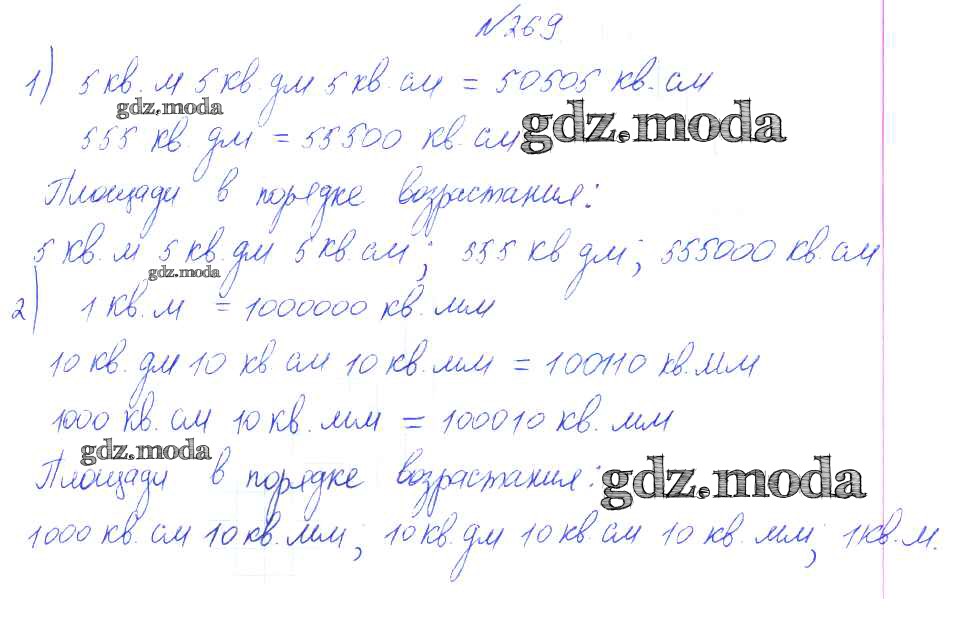 №269
1) 5 кв. м 5 кв. дм 5 кв. см = 50505 кв. см
gdz.moda
555 кв. дм = 55500 кв. см
gdz.moda
Площади в порядке возрастания:
5 кв. м 5 кв. дм 5 кв. см; 555 кв дм; 555000 кв. см
gdz.moda
2) 1 кв. м = 1000000 кв. мм
10 кв. дм 10 кв см 10 кв. мм = 100110 кв. мм
1000 кв. см 10 кв. мм = 100010 кв. мм
gdz.moda
Площади в порядке возрастания:
gdz.moda
1000 кв. см 10 кв. мм; 10 кв. дм 10 кв см 10 кв. мм; 1 кв. м.